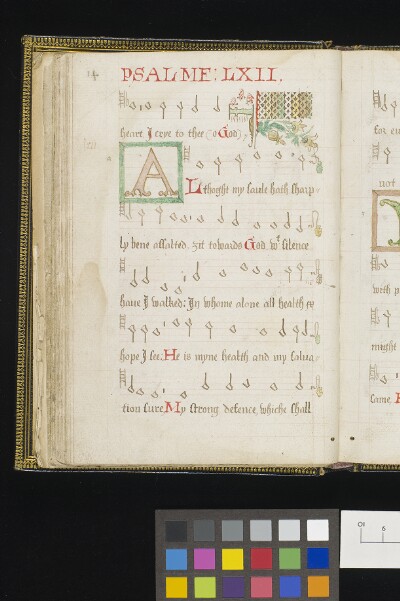 PSALME: LXII.
heart I crye to thee (o God)
A
Lthoght my saule hath sharp
ly bene assalted. zit towards God wt silence
haue I walked: In whome alone all health &
hope I see: He is myne health and my salua
tion sure My strong defence whiche shall
for eu
not
with p
might
same.